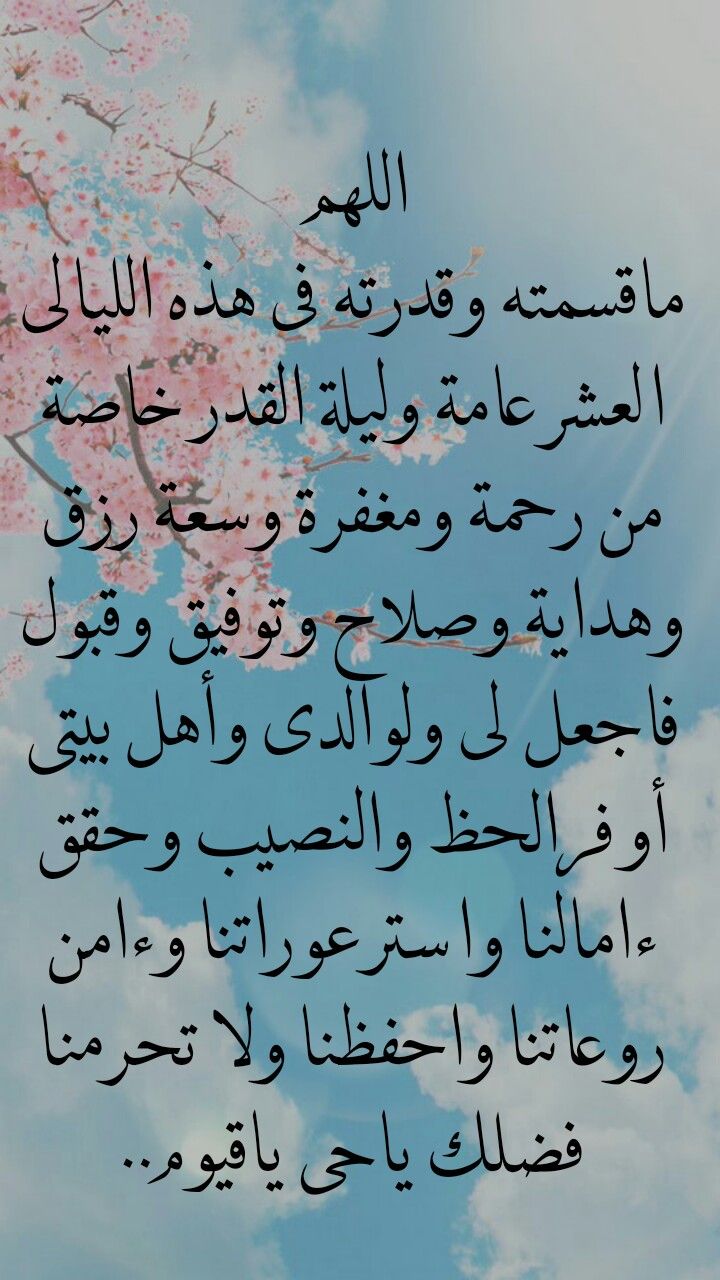 اللهم
ماقسمته وقدرته فى هذه الليالى
العشر عامة وليلة القدر خاصة
من رحمة ومغفرة وسعة رزق
وهداية وصلاح وتوفيق وقبول
فاجعل لى ولوالدى وأهل بيتى
أوفرالحظ والنصيب وحقق
ءامالنا واسترعوراتنا وءامن
روعاتنا واحفظنا ولا تحرمنا
فضلك ياحى ياقيوم..